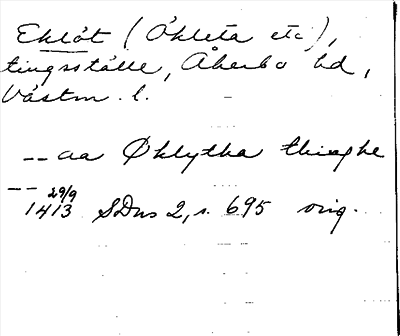 Eklöt (Ökleta etc),
tingsställe, Åkerbo hd,
Västm. l.
-- aa Øklytha thinghe
--
29/9
1413 SDns 2, s. 695 orig.